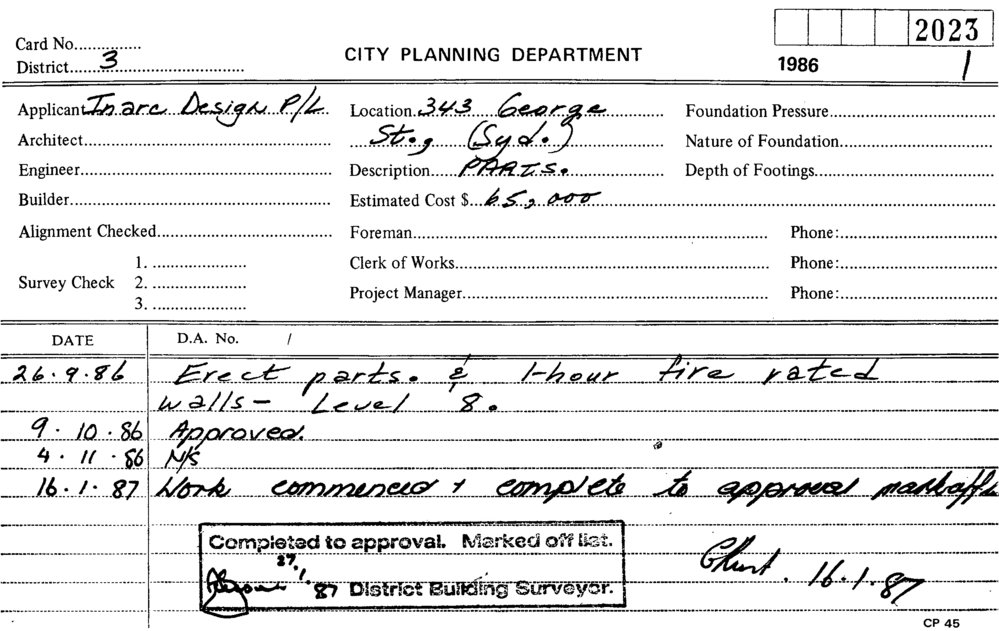 2023
Card No...............
District......3...............................
CITY PLANNING DEPARTMENT
1986 1
Applicant Inarc Design P/L Location 343 George Foundation Pressure
Architect St., (Syd.) Nature of Foundation
Engineer Description PARTS. Depth of Footings
Builder Estimated Cost $ 65,000
Alignment Checked Foreman Phone:
1. Clerk of Works Phone:
Survey Check 2.
3. Project Manager Phone:
DATE D.A. No. /
26.9.86 Erect parts. & 1-hour fire rated
walls - Level 8.
9.10.86 Approved.
4.11.86 N/S
16.1.87 Work commenced + complete to approval mark off
Completed to approval. Marked off list.
27.1.87 District Building Surveyor.
16.1.87
CP 45